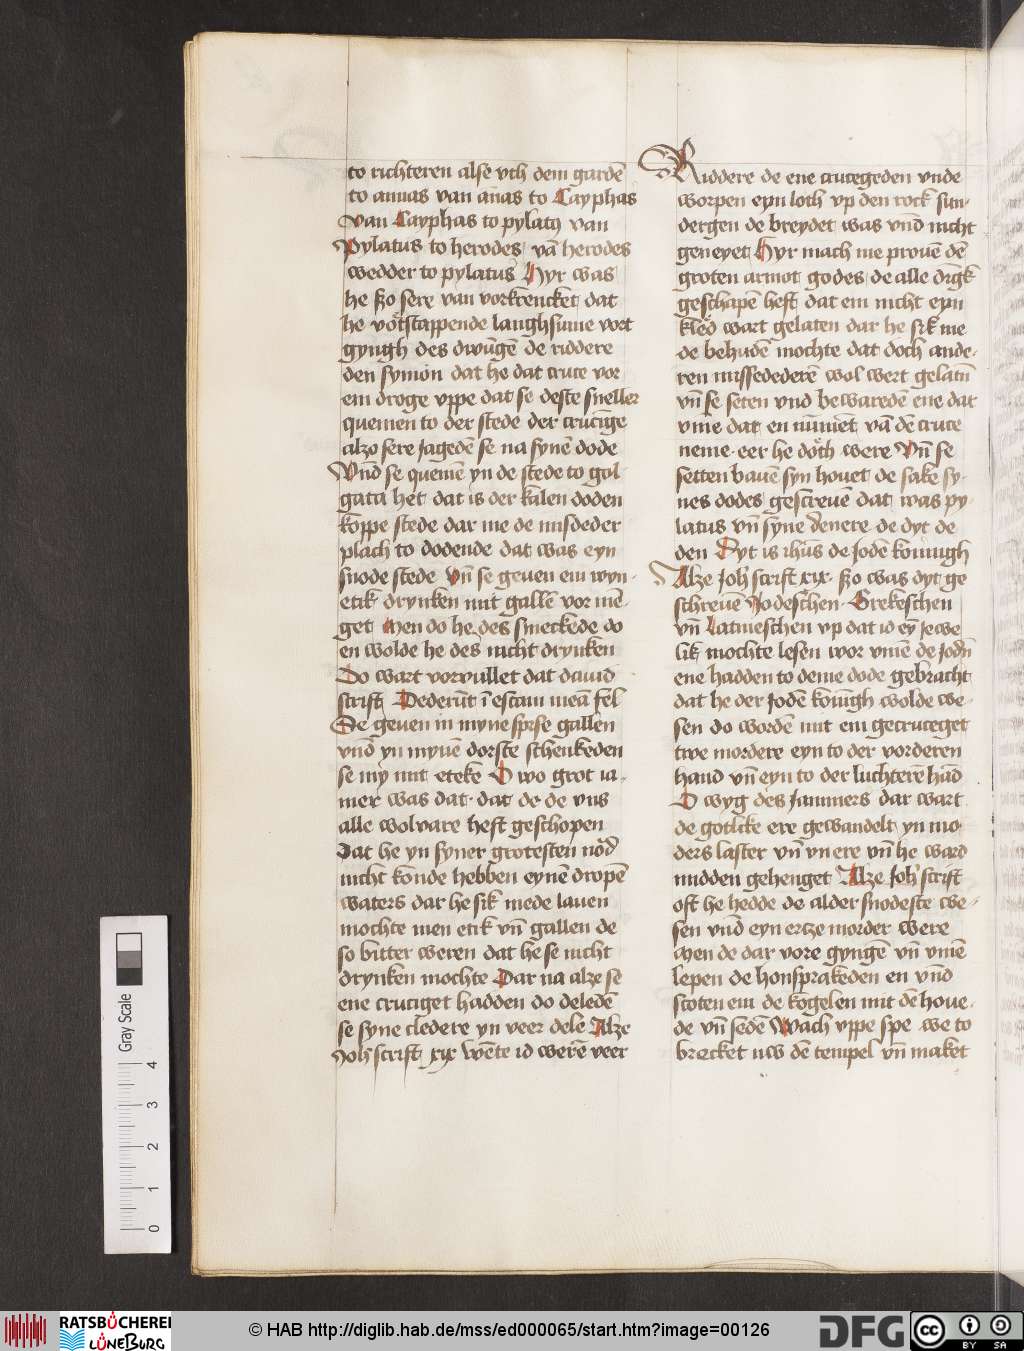 to richteren alse vth dem gardē
to annas van anas to Cayphas
van Cayphas to pylatꝯ van
Pylatus to herodes vā herodes
wedder to pylatus Hyr was
he ſzo ſere van vorkrencket dat
he voͤtſtappende langhſume vort
gyngh des dwūgē de riddere
den ſymon dat he dat cruce vor
em droge vppe dat ſe deſte ſneller
quemen to der ſtede der crucīge
alzo ſere Jagedē ſe na ſynē dode
Vnd ſe quemē yn de ſtede to gol
gata het dat is der kalen doden
koppe ſtede dar me de miſdeder
plach to dodende dat was eyn
ſnode ſtede vn̄ ſe geuen em wyn
etik drynken mit gallē vor mē
get Men do he des ſmeckede do
en wolde he des nicht drynken
Do wart vorvullet dat dauid
ſcrift Dederūt ī eſcam meā fel
Se geuen in myne ſpiſe gallen
vnd yn mynē dorſte ſchenkeden
ſe my mit eteke O wo grot ia
mer was dat dat de de vns
alle wolvare heft geſchopen
Dat he yn ſyner groteſten nōd
nicht konde hebben eynē dropē
waters dar he ſik mede lauen
mochte men etik vn̄ gallen de
ſo bitter weren dat he ſe nicht
drynken mochte Dar na alze ſe
ene cruciget hadden do deledē
ſe ſyne cledere yn veer dele Alze
Joh̄ ſcrift xix Wēte id werē veer
Riddere de ene crucegeden vnde
worpen eyn loth vp den rock ſun
dergen de breydet was vnd nicht
geneyet Hyr mach me prouē dē
groten armot godes de alle dīgk
geſchapē heft dat em nicht eyn
kled wart gelaten dar he ſik me
de behudē mochte dat doch ande
ren miſſedederē wol wert gelatē
vn̄ ſe ſeten vnd bewaredē ene dat
vme dat en nūmēt vā dē cruce
neme eer he doͤth were Vn̄ ſe
ſetten bauē ſyn houet de ſake ſy
nes dodes geſcreuē dat was py
latus vn̄ ſyne denere de dyt de
den Dyt is ihūs de Jodē konnigh
Alze Joh̄ ſcrift xix ſzo was dyt ge
ſchreuē Jodeſchen Grekeſchen
vn̄ Latineſchen vp dat id eȳ Jewe
lik mochte leſen wor vmē de Jodn̄
ene hadden to deme dode gebracht
dat he der Jodē konīgh wolde we
ſen do wordē mit em gecruceget
twe mordere eyn to der vorderen
hand vn̄ eyn to der luchterē hād
O wyg des Jammers dar wart
de gotlike ere gewandelt yn mo
ders laſter vn̄ vnere vn̄ he ward
midden gehenget Alze Joh̄ ſcrift
oft he hedde de alder ſnodeſte we
ſen vnd eyn ertze morder were
Men de dar vore gyngē vn̄ vmē
lepen de honſprakeden en vnd
ſcoten em de kogelen mit dē houe
de vn̄ ſedē Wach vppe ſpe we to
brecket nw dē tempel vn̄ maket
Gray Scale
4
3
2
1
0
RATSBÜCHEREI
LÜNEBURG
© HAB http://diglib.hab.de/mss/ed000065/start.htm?image=00126
DFG
cc
BY SA